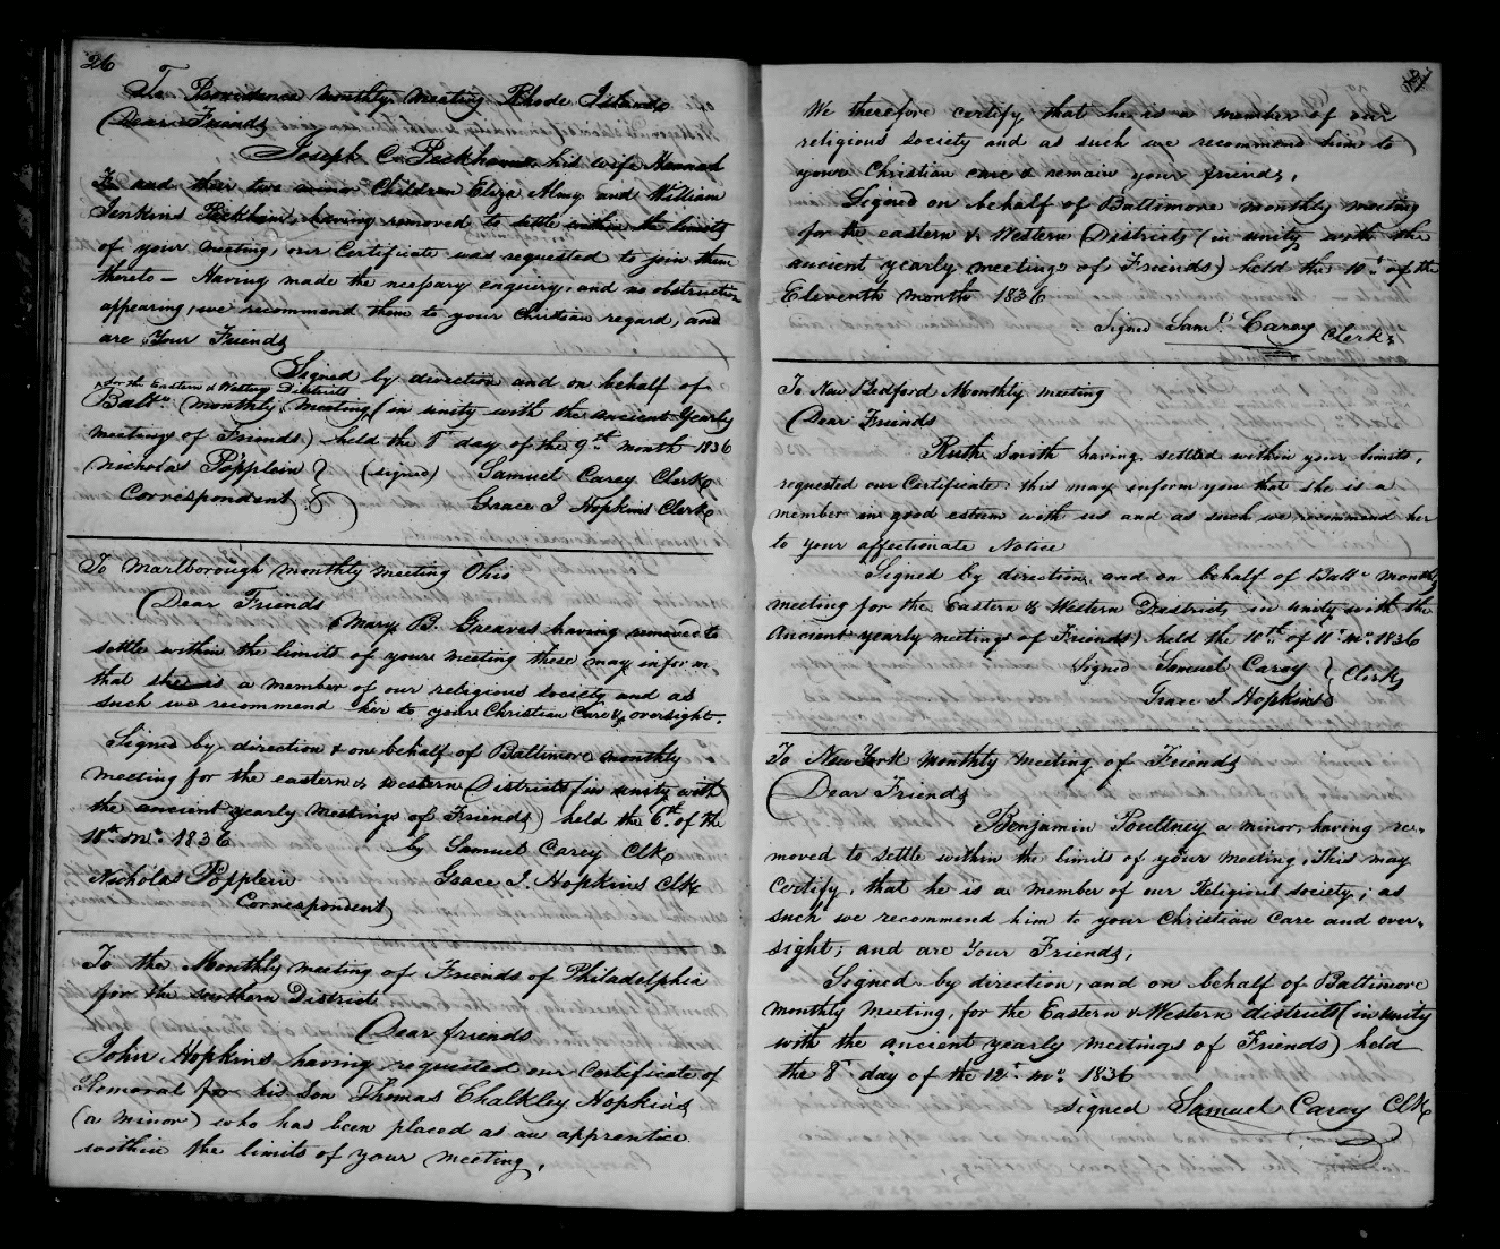 26
To Providence monthly meeting Rhode Island
Dear Friends
Joseph C. Peckham his wife Hannah
and their two minor Children Eliza Almy and William
Jenkins Peckham, having removed to settle within the limits
of your meeting, our Certificate was requested to join them
thereto — Having made the necessary enquiry, and no obstruction
appearing, we recommend them to your Christian regard, and
are Your Friends
Signed by direction and on behalf of
for the Eastern & Western Districts
Balto. monthly meeting (in unity with the ancient Yearly
meetings of Friends) held the 8 day of the 9th month 1836
Nicholas Popplein (signed) Samuel Carey Clerk
Correspondent Grace I Hopkins Clerk
To Marlborough monthly meeting Ohio
Dear Friends
Mary B. Greaves having removed to
settle within the limits of your meeting these may inform
that she is a member of our religious society and as
such we recommend her to your Christian Care & oversight.
Signed by direction & on behalf of Baltimore monthly
meeting for the eastern & western Districts (in unity with
the ancient yearly meetings of Friends) held the 6th of the
10th mo. 1836 by Samuel Carey Clk
Nicholas Popplein Grace I. Hopkins Clk
Correspondent
To the Monthly meeting of Friends of Philadelphia
for the southern District
Dear friends
John Hopkins having requested our Certificate of
Removal for his Son Thomas Chalkley Hopkins
(a minor) who has been placed as an apprentice
within the limits of your meeting,
27
We therefore certify that he is a member of our
religious society and as such we recommend him to
your Christian care & remain your friends,
Signed on behalf of Baltimore monthly meeting
for the eastern & Western Districts (in unity with the
ancient yearly meetings of Friends) held the 10th of the
Eleventh month 1836
Signed Saml. Carey Clerk
To New Bedford Monthly meeting
Dear Friends
Ruth Smith having settled within your limits,
requested our Certificate: this may inform you that she is a
member in good esteem with us and as such we recommend her
to your affectionate Notice
Signed by direction and on behalf of Balto monthly
meeting for the Eastern & Western Districts in unity with the
Ancient yearly meetings of Friends) held the 10th of 11 mo. 1836
Signed Samuel Carey } Clerks
Grace I Hopkins
To New York monthly meeting of Friends
Dear Friends
Benjamin Poultney a minor, having re-
moved to settle within the limits of your meeting, This may
Certify, that he is a member of our Religious society; as
such we recommend him to your Christian Care and over-
sight; and are Your Friends,
Signed by direction, and on behalf of Baltimore
monthly meeting, for the Eastern & Western districts (in unity
with the ancient yearly meetings of Friends) held
the 8th day of the 12th mo. 1836
Signed Samuel Carey Clk